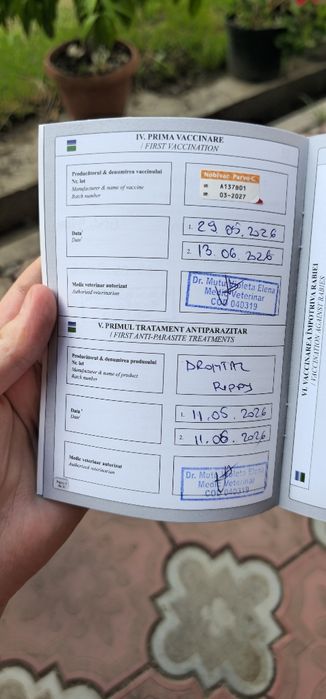 IV. PRIMA VACCINARE
/ FIRST VACCINATION
Producătorul & denumirea vaccinului
Nr. lot
Manufacturer & name of vaccine
Batch number
Nobivac Parvo-C
A137B01
03-2027
Data
Date
1. 29.05.2026
2. 13.06.2026
Medic veterinar autorizat
Authorised veterinarian
Dr. Mutu Violeta Elena
Medic Veterinar
COD 040319
V. PRIMUL TRATAMENT ANTIPARAZITAR
/ FIRST ANTI-PARASITE TREATMENTS
Producătorul & denumirea produsului
Nr. lot
Manufacturer & name of product
Batch number
DRONTAL
PUPPY
Data
Date
1. 11.05.2026
2. 11.06.2026
Medic veterinar autorizat
Authorised veterinarian
Dr. Mutu Violeta Elena
Medic Veterinar
COD 040319
VI. VACCINAREA ÎMPOTRIVA RABIEI
/ VACCINATION AGAINST RABIES